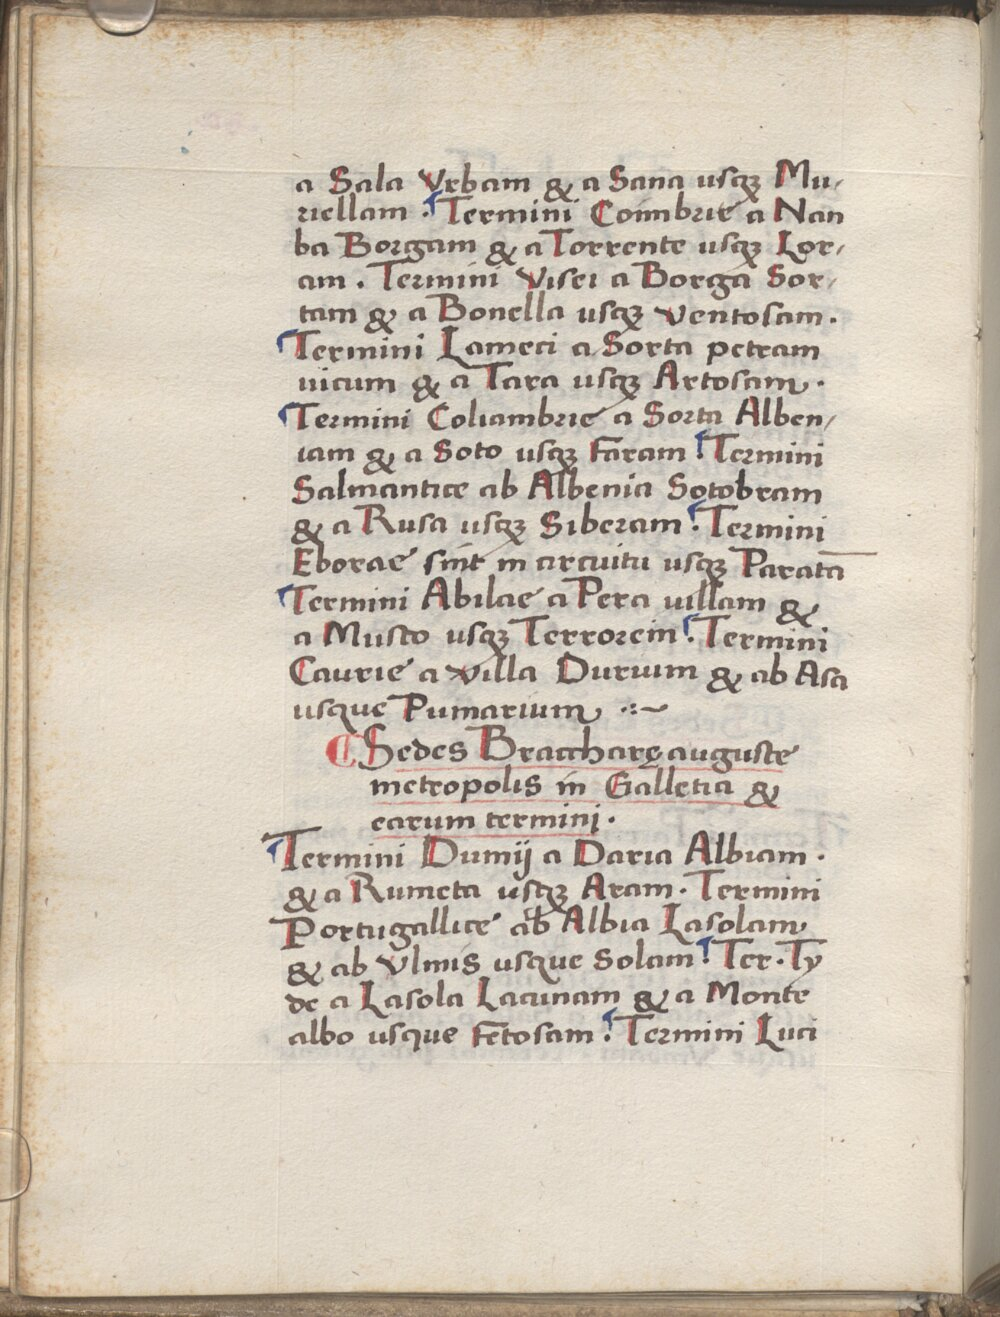 a Sala Vrbam & a Sana usqꝫ Mu-
riellam . Termini Coimbrie a Nan
ba Borgam & a Torrente usqꝫ Lor-
am . Termini Visei a Borga Sor-
tam & a Bonella usqꝫ ventosam .
Termini Lameci a Sorta petram
uicum & a Tara usqꝫ Artosam .
Termini Coliambrie a Sorta Alben-
iam & a Soto usqꝫ Faram . Termini
Salmantice ab Albenia Sotobram
& a Rusa usqꝫ Siberam . Termini
Eborae sint in circuitu usqꝫ Paratā
Termini Abilae a Pera uillam &
a Musto usqꝫ Terrorem . Termini
Caurie a villa Durium & ab Asa
usque Pumarium
Sedes Braccharę auguste
metropolis in Galletia &
earum termini .
Termini Dumij a Daria Albiam .
& a Rumeta usqꝫ Aram . Termini
Portugallice ab Albia Lasolam
& ab Vlmis usque Solam . Ter . Ty
de a Lasola Lacunam & a Monte
albo usque Fetosam . Termini Luci